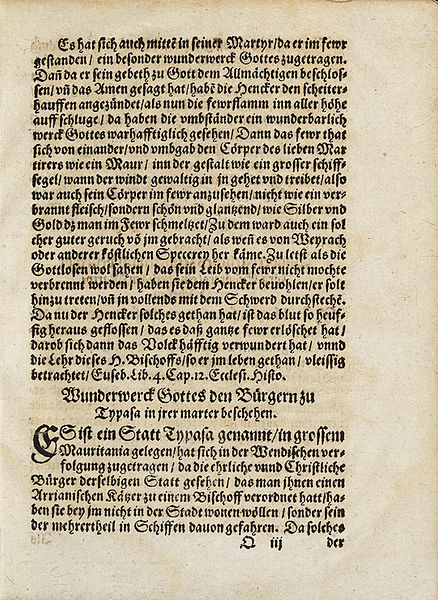 Es hat sich auch mittē in seiner Martyr/da er im fewr
gestanden/ ein besonder wunderwerck Gottes zugetragen.
Dañ da er sein gebeth zu Gott dem Allmächtigen beschlos-
sen/ vñ das Amen gesagt hat/ habē die Hencker den scheiter-
hauffen angezündet/als nun die fewrflamm inn aller höhe
auff schluge/ da haben die vmbständer ein wunderbarlich
werck Gottes warhafftiglich gesehen/ Dann das fewr that
sich von einander/ vnd vmbgab den Cörper des lieben Mar
tirers wie ein Maur/ inn der gestalt wie ein grosser schiff-
segel/ wann der windt gewaltig in jn gehet vnd treibet/also
war auch sein Cörper im fewr anzusehen/ nicht wie ein ver-
brannt fleisch/sondern schön vnd glantzend/ wie Silber vnd
Gold dz man im Fewr schmeltzet/ Zu dem ward auch ein sol
cher guter geruch võ jm gebracht/ als weñ es von Weyrach
oder anderer köstlichen Specerey her käme. Zu letst als die
Gottlosen wol sahen/ das sein Leib vom fewr nicht mochte
verbrennt werden/ haben sie dem Hencker beuohlen/ er solt
hinzu treten/ vñ jn vollends mit dem Schwerd durchstechē.
Da nu der Hencker solches gethan hat/ ist das blut so heuf-
fig heraus geflossen/ das es daß gantze fewr erlöschet hat/
darob sich dann das Volck häfftig verwundert hat/ vnnd
die Lehr dieses H. Bischoffs/so er jm leben gethan/ vleissig
betrachtet/ Euseb. Lib. 4. Cap. 12. Ecclest. Histo.
Wunderwerck Gottes den Bürgern zu
Typasa in jrer marter beschehen.
ES ist ein Statt Typasa genannt/ in grossem
Mauritania gelegen/ hat sich in der Wendischen ver-
folgung zugetragen/ da die ehrliche vnnd Christliche
Bürger derselbigen Statt gesehen/ das man jhnen einen
Arrianischen Kätzer zu einem Bischoff verordnet hatt/ ha-
ben sie bey jm nicht in der Stadt wonen wöllen/ sonder sein
der mehrertheil in Schiffen dauon gefahren. Da solches
O iij der